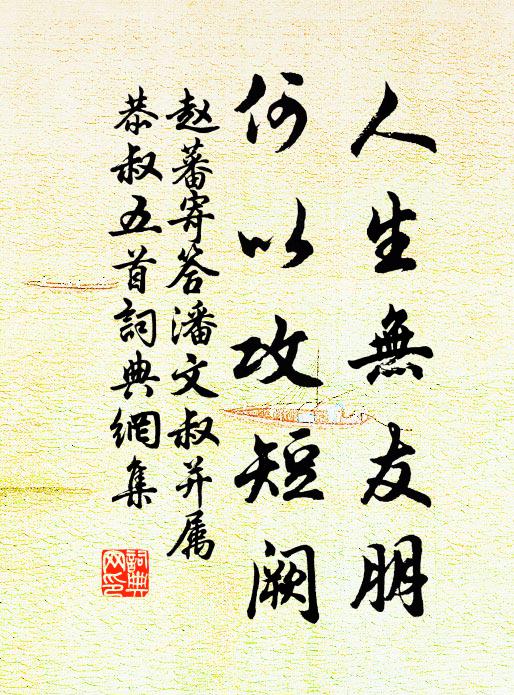 人生無友朋
何以攻短阙
赵蕃寄答潘文叔并属
恭叔五首詞典網集
詞典網印